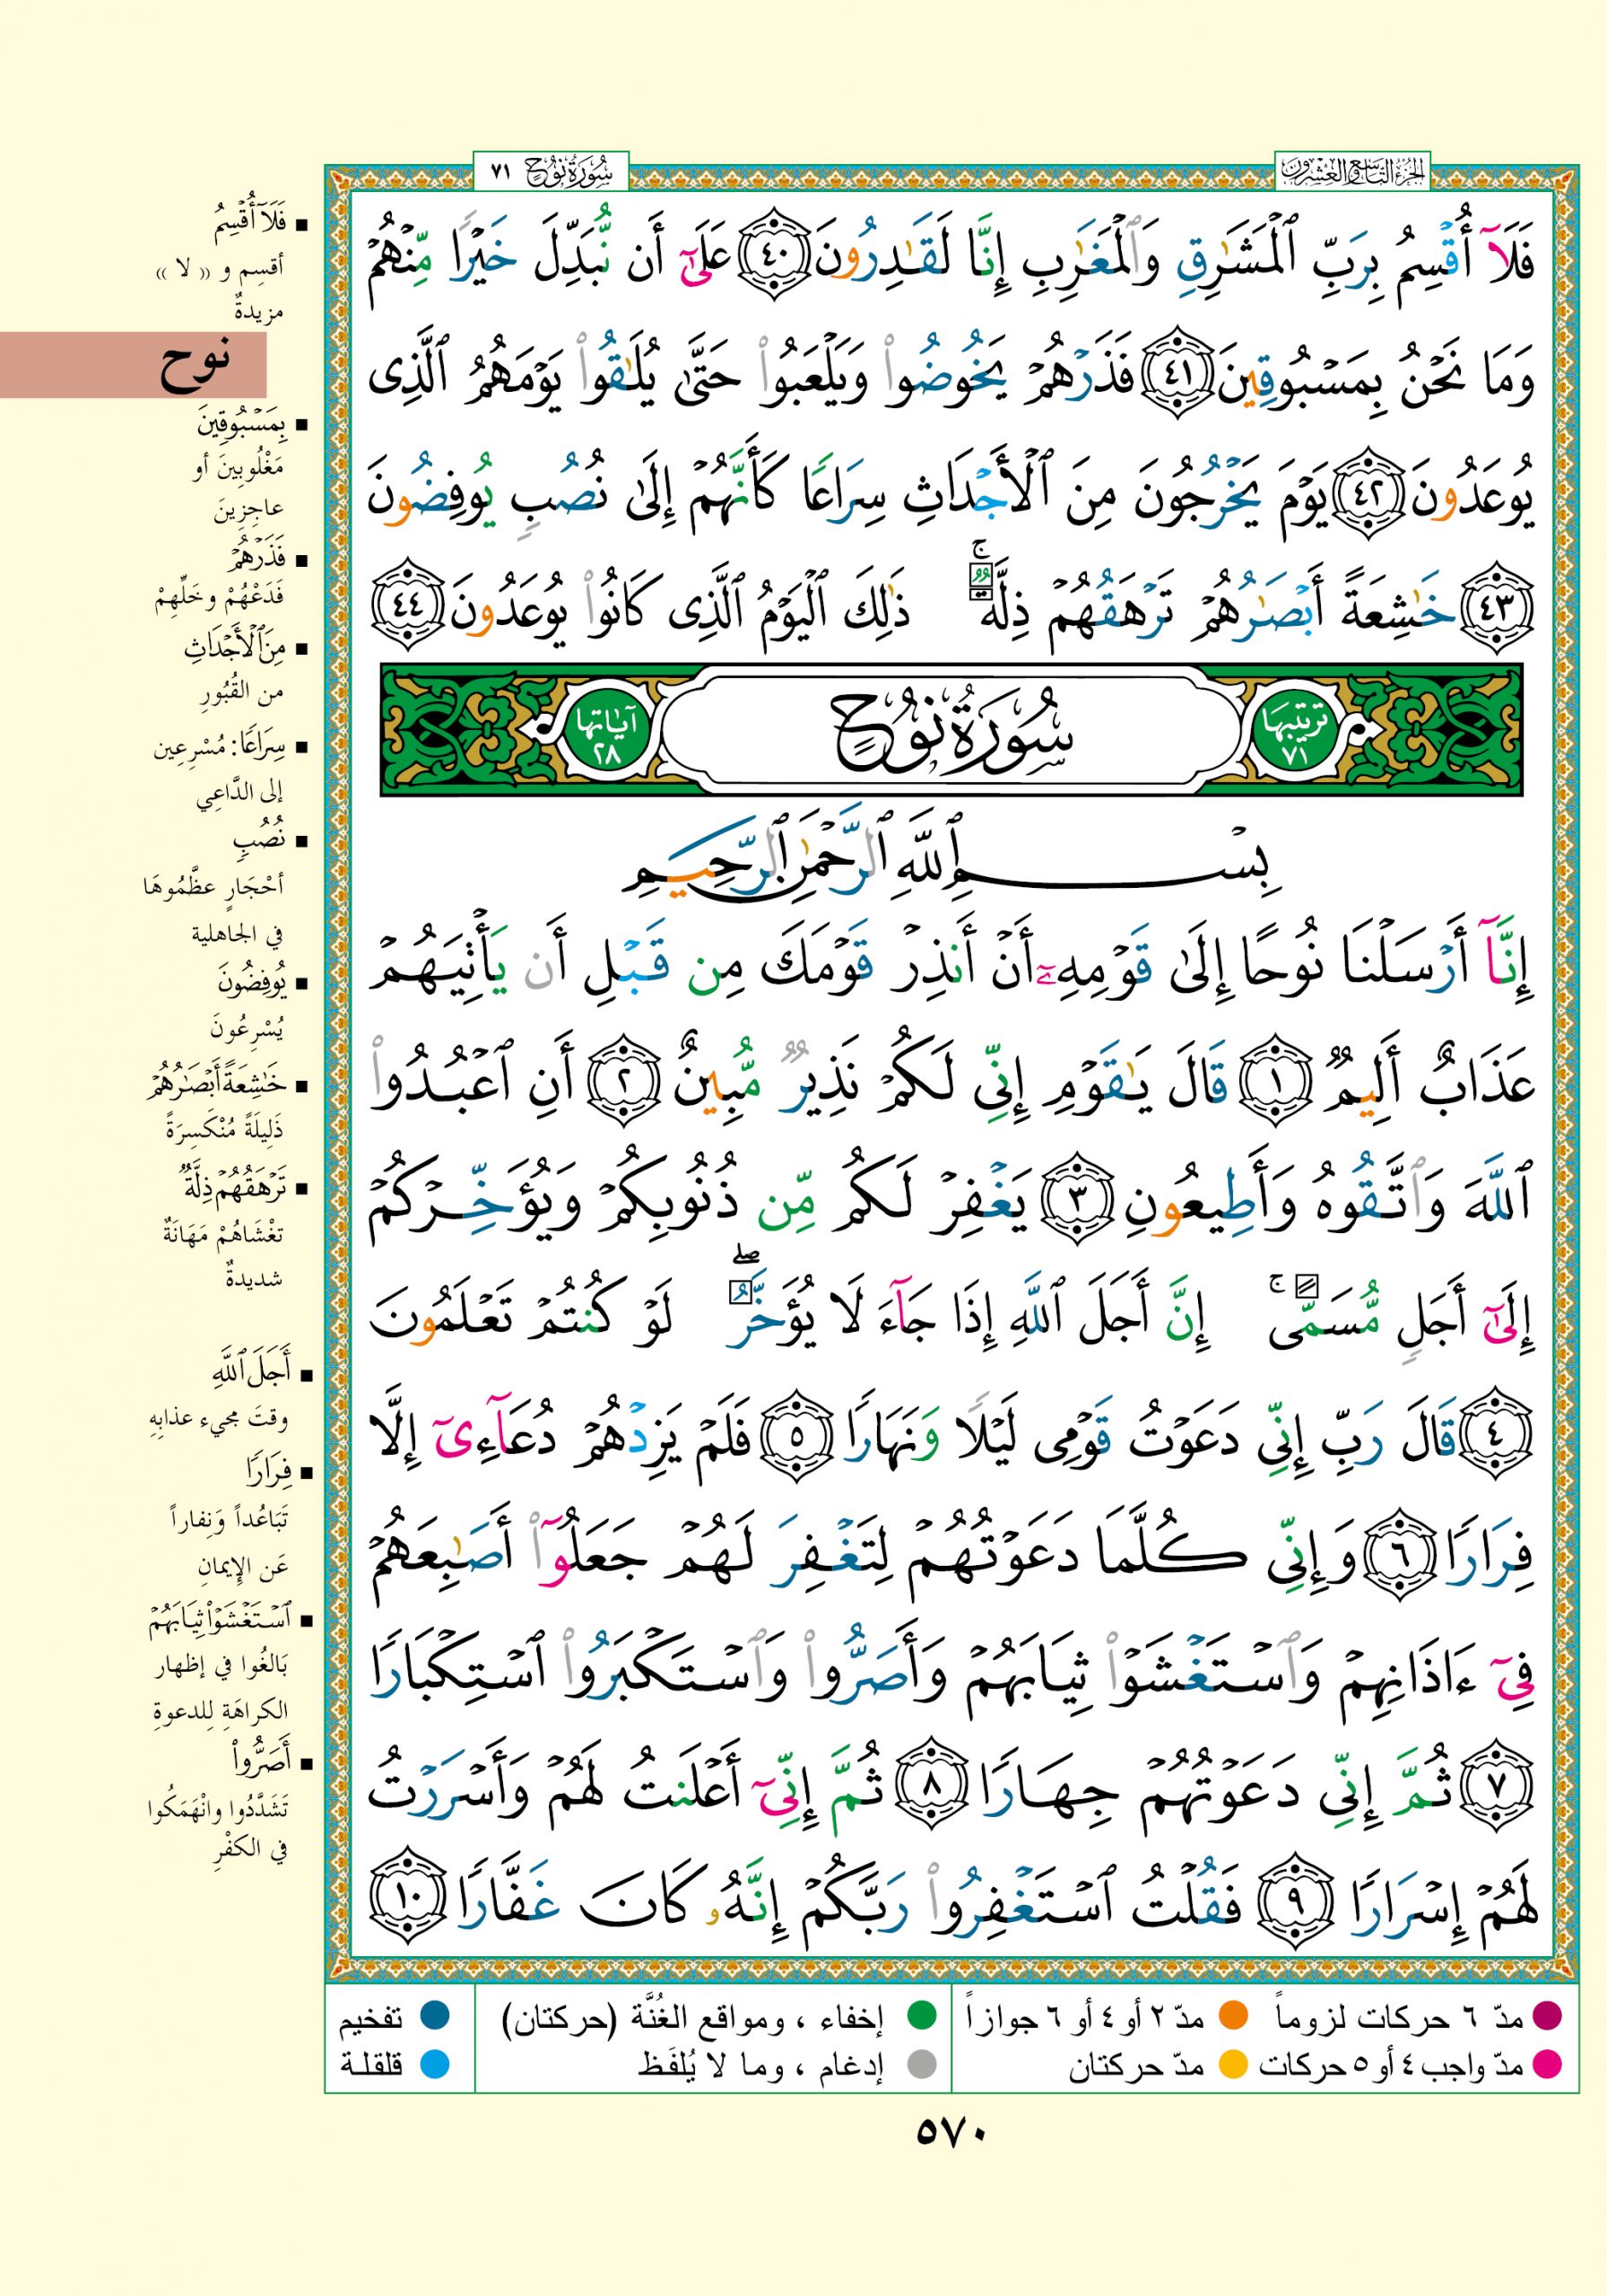 الجزء التاسع والعشرون
سورة نوح ٧١
فَلَآ أُقْسِمُ بِرَبِّ ٱلْمَشَٰرِقِ وَٱلْمَغَٰرِبِ إِنَّا لَقَٰدِرُونَ ٤٠ عَلَىٰٓ أَن نُّبَدِّلَ خَيْرًا مِّنْهُمْ
وَمَا نَحْنُ بِمَسْبُوقِينَ ٤١ فَذَرْهُمْ يَخُوضُوا۟ وَيَلْعَبُوا۟ حَتَّىٰ يُلَٰقُوا۟ يَوْمَهُمُ ٱلَّذِى
يُوعَدُونَ ٤٢ يَوْمَ يَخْرُجُونَ مِنَ ٱلْأَجْدَاثِ سِرَاعًا كَأَنَّهُمْ إِلَىٰ نُصُبٍ يُوفِضُونَ
٤٣ خَٰشِعَةً أَبْصَٰرُهُمْ تَرْهَقُهُمْ ذِلَّةٌ ۚ ذَٰلِكَ ٱلْيَوْمُ ٱلَّذِى كَانُوا۟ يُوعَدُونَ ٤٤
ترتيبها ٧١ سُورَةُ نُوحٍ آياتها ٢٨
بِسْمِ ٱللَّهِ ٱلرَّحْمَٰنِ ٱلرَّحِيمِ
إِنَّآ أَرْسَلْنَا نُوحًا إِلَىٰ قَوْمِهِۦٓ أَنْ أَنذِرْ قَوْمَكَ مِن قَبْلِ أَن يَأْتِيَهُمْ
عَذَابٌ أَلِيمٌ ١ قَالَ يَٰقَوْمِ إِنِّى لَكُمْ نَذِيرٌ مُّبِينٌ ٢ أَنِ ٱعْبُدُوا۟
ٱللَّهَ وَٱتَّقُوهُ وَأَطِيعُونِ ٣ يَغْفِرْ لَكُم مِّن ذُنُوبِكُمْ وَيُؤَخِّرْكُمْ
إِلَىٰٓ أَجَلٍ مُّسَمًّى ۚ إِنَّ أَجَلَ ٱللَّهِ إِذَا جَآءَ لَا يُؤَخَّرُ ۖ لَوْ كُنتُمْ تَعْلَمُونَ
٤ قَالَ رَبِّ إِنِّى دَعَوْتُ قَوْمِى لَيْلًا وَنَهَارًا ٥ فَلَمْ يَزِدْهُمْ دُعَآءِىٓ إِلَّا
فِرَارًا ٦ وَإِنِّى كُلَّمَا دَعَوْتُهُمْ لِتَغْفِرَ لَهُمْ جَعَلُوٓا۟ أَصَٰبِعَهُمْ
فِىٓ ءَاذَانِهِمْ وَٱسْتَغْشَوْا۟ ثِيَابَهُمْ وَأَصَرُّوا۟ وَٱسْتَكْبَرُوا۟ ٱسْتِكْبَارًا
٧ ثُمَّ إِنِّى دَعَوْتُهُمْ جِهَارًا ٨ ثُمَّ إِنِّىٓ أَعْلَنتُ لَهُمْ وَأَسْرَرْتُ
لَهُمْ إِسْرَارًا ٩ فَقُلْتُ ٱسْتَغْفِرُوا۟ رَبَّكُمْ إِنَّهُۥ كَانَ غَفَّارًا ١٠
▪ فَلَآ أُقْسِمُ
أقسِم و « لا »
مزيدةٌ
نوح
▪ بِمَسْبُوقِينَ
مَغْلُوبِينَ أو
عاجِزِينَ
▪ فَذَرْهُمْ
فَدَعْهُمْ وخَلِّهِمْ
▪ مِنَ ٱلْأَجْدَاثِ
من القُبُورِ
▪ سِرَاعًا: مُسْرِعِين
إلى الدَّاعِي
▪ نُصُبٍ
أحْجَارٍ عظَّمُوهَا
في الجاهلية
▪ يُوفِضُونَ
يُسْرِعُونَ
▪ خَٰشِعَةً أَبْصَٰرُهُمْ
ذَلِيلَةً مُنْكَسِرَةً
▪ تَرْهَقُهُمْ ذِلَّةٌ
تغْشَاهُمْ مَهَانَةٌ
شديدةٌ
▪ أَجَلَ ٱللَّهِ
وقتَ مجيء عذابِهِ
▪ فِرَارًا
تَبَاعُداً وَنِفاراً
عَن الإِيمانِ
▪ ٱسْتَغْشَوْا۟ ثِيَابَهُمْ
بَالغُوا في إظهار
الكراهَةِ لِلدعوةِ
▪ أَصَرُّوا۟
تَشَدَّدُوا وانْهَمَكُوا
في الكفْرِ
مدّ ٦ حركات لزوماً مدّ ٢ أو ٤ أو ٦ جوازاً إخفاء ، ومواقع الغُنَّة (حركتان) تفخيم
مدّ واجب ٤ أو ٥ حركات مدّ حركتان إدغام ، وما لا يُلفَظ قلقلة
٥٧٠